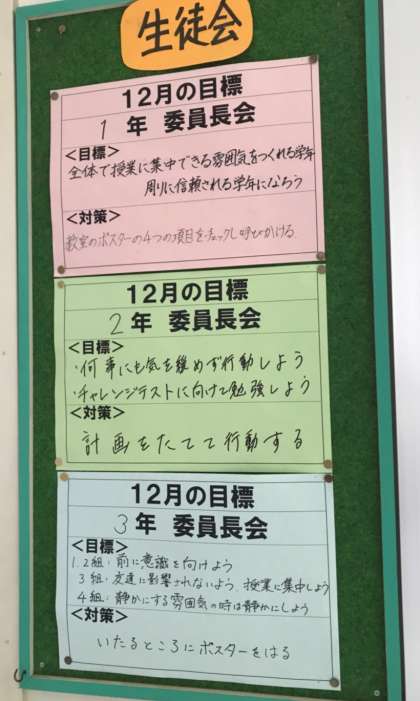 生徒会
12月の目標
1年 委員長会
<目標>
全体で授業に集中できる雰囲気をつくれる学年
周りに信頼される学年になろう
<対策>
教室のポスターの4つの項目をチェックし呼びかける
12月の目標
2年 委員長会
<目標>
・何事にも気を緩めず行動しよう
・チャレンジテストに向けて勉強しよう
<対策>
計画をたてて行動する
12月の目標
3年 委員長会
<目標>
1.2組:前に意識を向けよう
3組:友達に影響されないよう、授業に集中しよう
4組:静かにする雰囲気の時は静かにしよう
<対策>
いたるところにポスターをはる